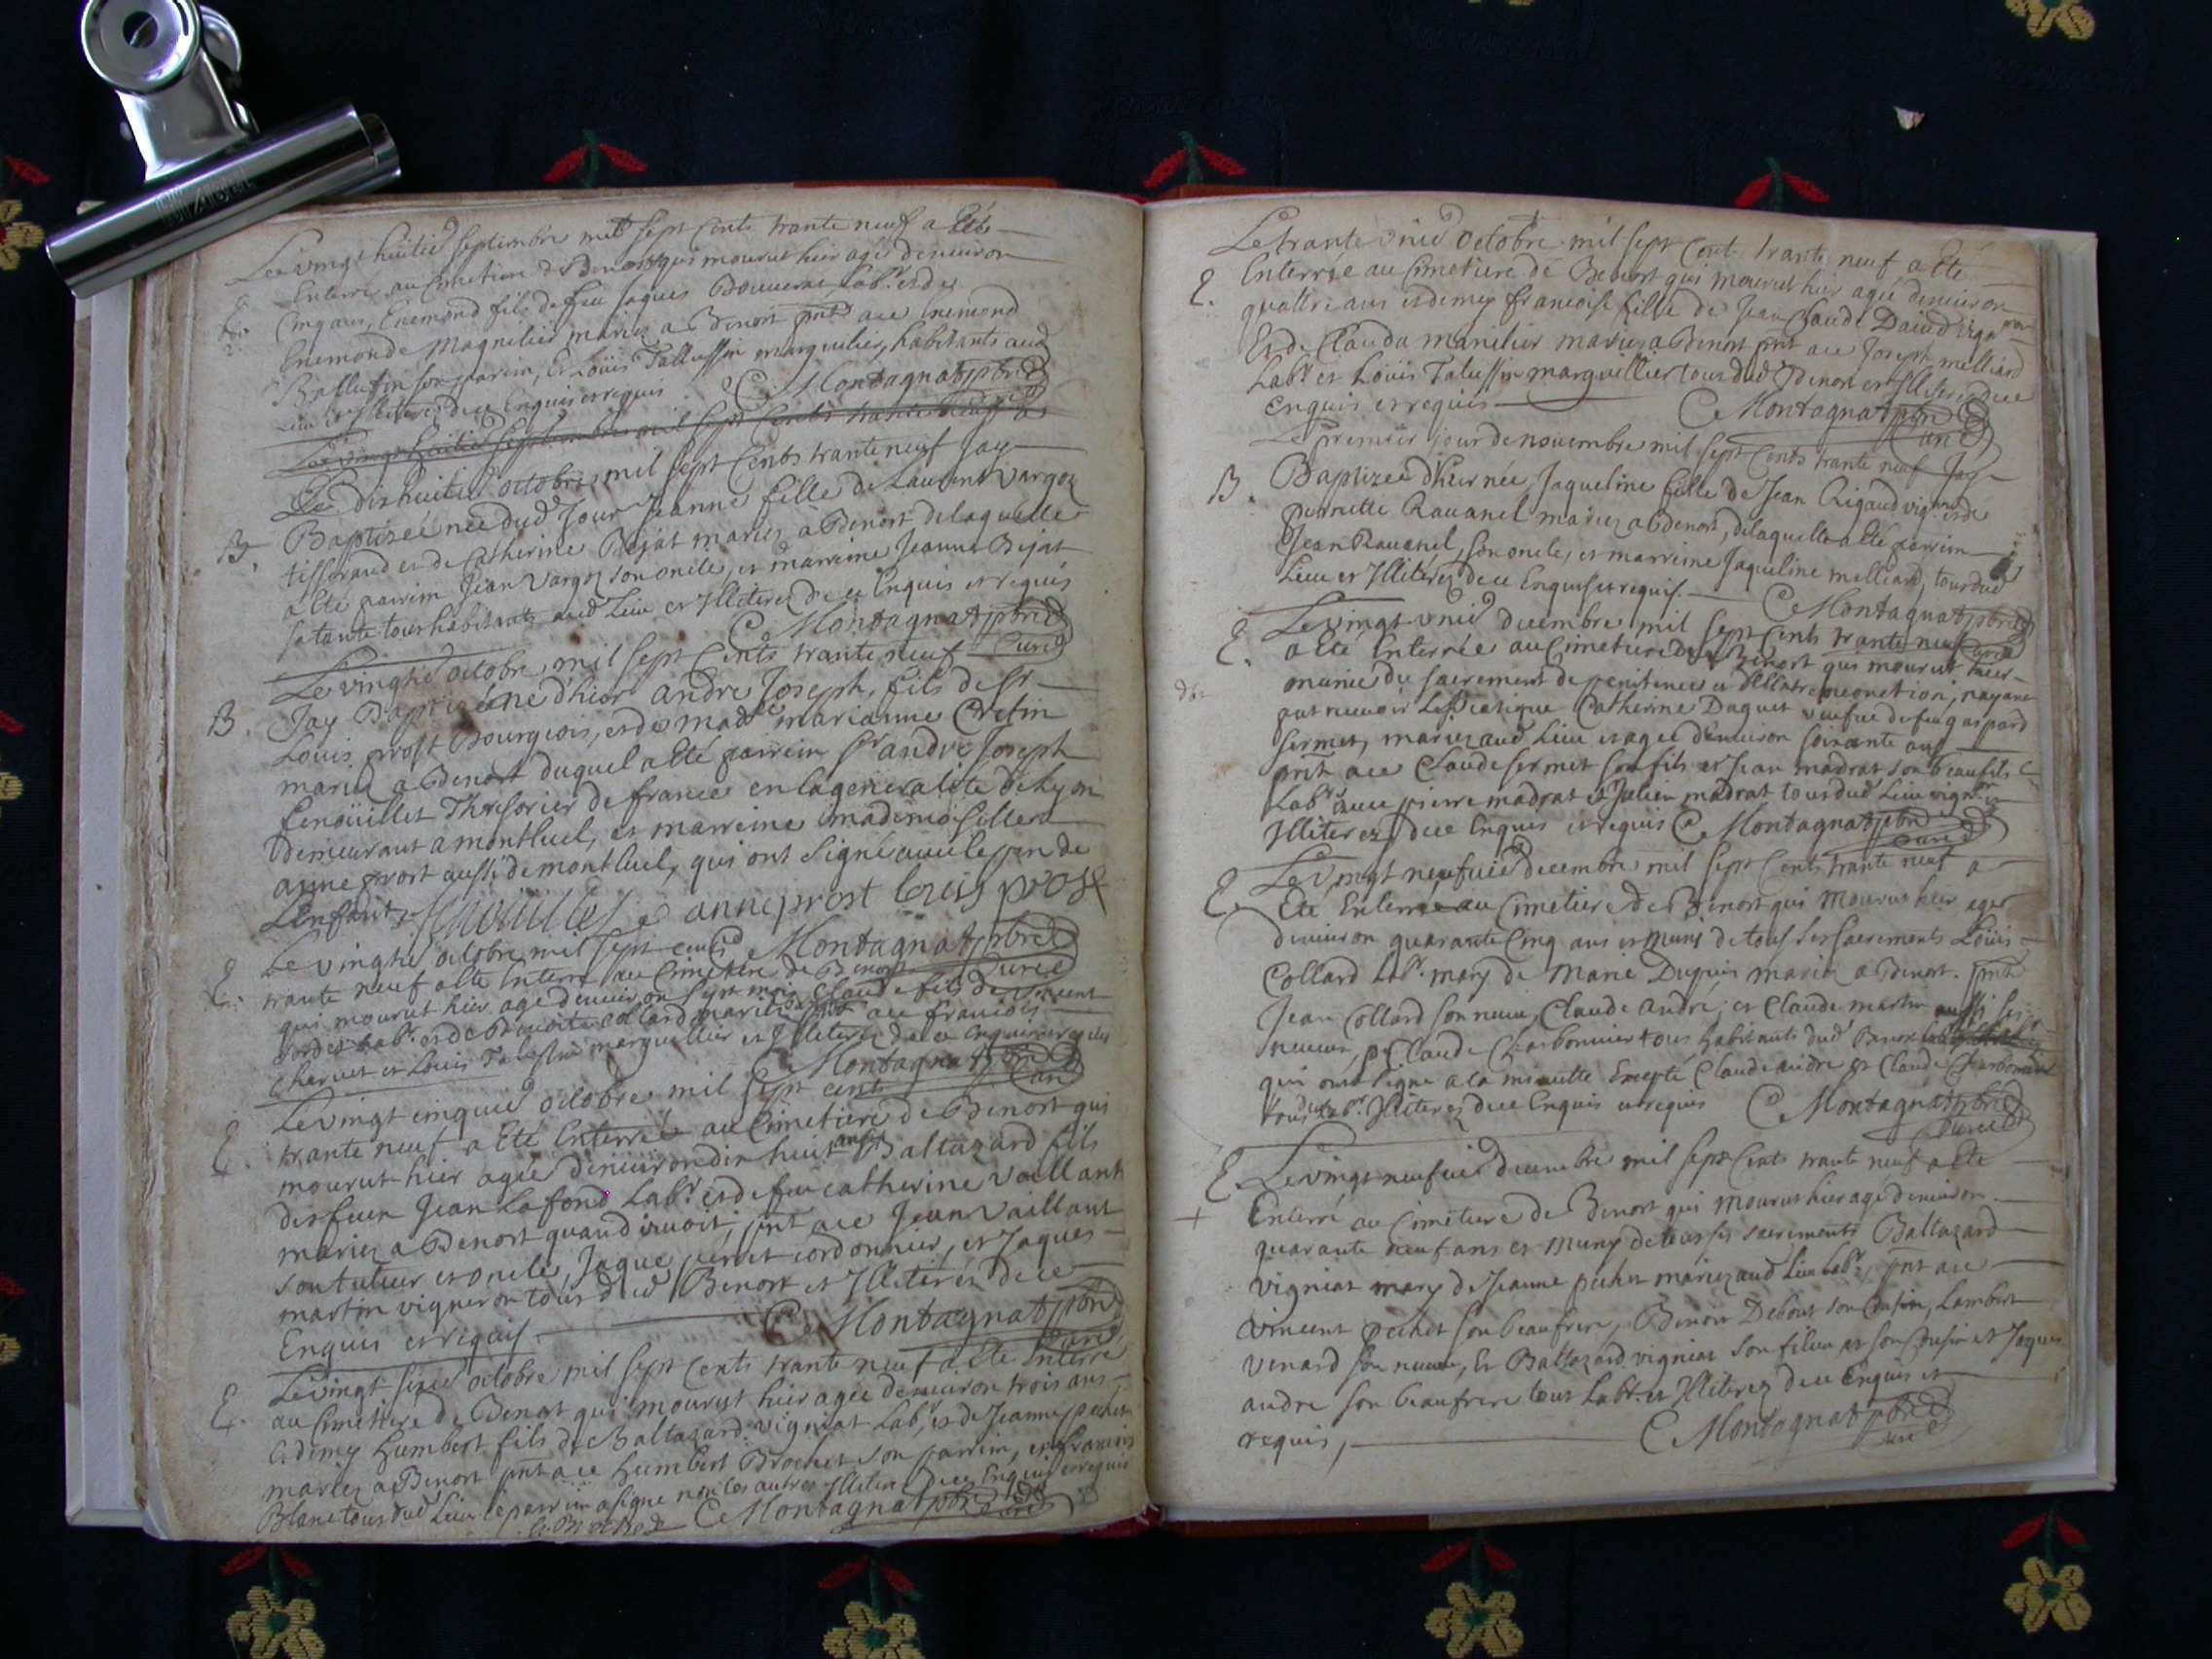 Le vingt huitie septembre mil sept cents trante neuf a Eté
E. Enterré au Cimetiere de Benost qui mourut hier agé denuiron
Cinq ans, Enemond fils de feu Jaques Labr. et de
Enemonde Magnilier mariez a Benost pnt a ce Enemond
son parrin, Et Loüis Tallussin marguilier, habitants aud
Lieu et Illiterez de ce Enquis et requis C. Montagnat pbre
Le vingt huitie septembre mil sept Cents trante neuf a
Le dix huitie octobre mil sept Cents trante neuf Jay
B. Baptizée née dud Jour Jeanne fille de Laurent Vargoz
tisserand et de Catherine Bejat mariez a Benost de laquelle
a Eté parrim Jean Vargoz son oncle, et marreine Jeanne Bejat
sa tante tous habitants aud Lieu et Illiterez de ce Enquis et requis
C Montagnat pbre
Curé
Le vingtie octobre mil sept Cents trante neuf
B. Jay Baptizé né d'hier andre Joseph, fils de Sr
Louis prost Bourgeois, et de madlle marianne Cretin
mariez a Benost duquel a Eté parrein Sr andré Joseph
fenoüillet Thresorier de france en la generalité de Lyon
demeurant a montluel, et marreine mademoiselle
anne prost aussi de montluel, qui ont signé auec le pere de
L'enfant. fenouillet anne prost louis prost
Le vingtie octobre mil sept cents C Montagnat pbre
Curé
E. trante neuf a Eté Enterré au Cimetiere de Benost
qui mourut hier agé denuiron sept mois Claude fils de Vincent
Labr. et de Benoite Collard mariez pnt a ce francois
Charuet et Louis Talussin marguillier et Illiterez de ce Enquis et requis
C Montagnat pbre
Curé
Le vingt cinquie octobre mil sept cents
E. trante neuf a Eté Enterré au Cimetiere de Benost qui
mourut hier agée denuiron dix huit ans Baltazard fils
de feu Jean Lafond Labr et de feu catherine Vaillant
mariez a Benost quand viuoit; pnt a ce Jean Vaillant
son tuteur et oncle, Jaque cordonnier, et Jaques
martin vigneron tous dud Benost et Illiterez de ce
Enquis et requis. C Montagnat pbre
Curé
Le vingt sixie octobre mil sept Cents trante neuf a Eté Enterré
E. au Cimetiere de Benost qui mourut hier agée denuiron trois ans
Et demy Humbert fils de Baltazard vigniat Labr, et de Jeanne pechet
mariez a Benost pnt a ce Humbert Brochet son parrin, et francois
Blanc tous dud Lieu le parrin a signe non les autres Illiterez de ce Enquis et requis
C Montagnat pbre Curé
Le trante unie octobre mil sept Cents trante neuf a Eté
E. Enterrée au Cimetiere de Benost qui mourut hier agée denuiron
quattre ans et demy francoise fille de Jean Claude Dauid
Et de Clauda manilier mariez a Benost pnt a ce Joseph melliard
Labr et Loüis Talussin marguillier tous dud Benost et Illiterez de ce
Enquis et requis C Montagnat pbre
Curé
Le premier jour de nouembre mil sept Cents trante neuf Jay
B. Baptizée d'hier née, Jaqueline fille de Jean Rigaud vignr et de
pierrette Rauanel mariez a Benost, de laquelle a Eté parrim
Jean Rauanel, son oncle, et marreine Jaqueline melliard, tous dud
Lieu et Illiterez de ce Enquis et requis. C Montagnat pbre
Curé
Le vingt unie decembre mil sept Cents trante neuf
E. a Eté Enterrée au Cimetiere de Benost qui mourut hier
munie du sacrement de penitence et d'Extremeonction, nayant
put receuoir Le Viatique Catherine Daguet veufue de feu gaspard
sermet, mariez aud Lieu et agée denuiron soixante ans
pnt a ce Claude sermet son fils et Jean madrat son beaufils
Labr auec pierre madrat et Julien madrat tous dud Lieu vignr et
Illiterez de ce Enquis et requis C Montagnat pbre
Curé
Le vingt neufuie decembre mil sept Cents trante neuf a
E. Eté Enterré au Cimetiere de Benost qui mourut hier agé
denuiron quarante Cinq ans et muni de tous ses sacrements Loüis
Collard Labr. mary de Marie Dupuis mariez a Benost. pnt
Jean Collard son neueu, Claude andré, et Claude martin aussi ses
neueux, et Claude Charbonnier tous habitants dud Benost
qui ont signe a la minutte Excepté Claude andre et Claude Charbonnier
tous deux Labr. Illiterez de ce Enquis et requis C Montagnat pbre
Curé
E. Le vingt neufuie decembre mil sept Cents trante neuf a Eté
Enterré au Cimetiere de Benost qui mourut hier agé denuiron
quarante neuf ans et muny de tous ses sacrements Baltazard
vigniat mary de Jeanne pechet mariez aud Lieu Labr, pnt a ce
vincent pechet son beaufrere, Benoit Debout son Cusin, Lambert
venard son neueu, Et Baltazard vigniat son filieu et son Cusin et Jaques
andre son beaufrere tous Labr. et Illiterez de ce Enquis et
requis, C Montagnat pbre
Curé